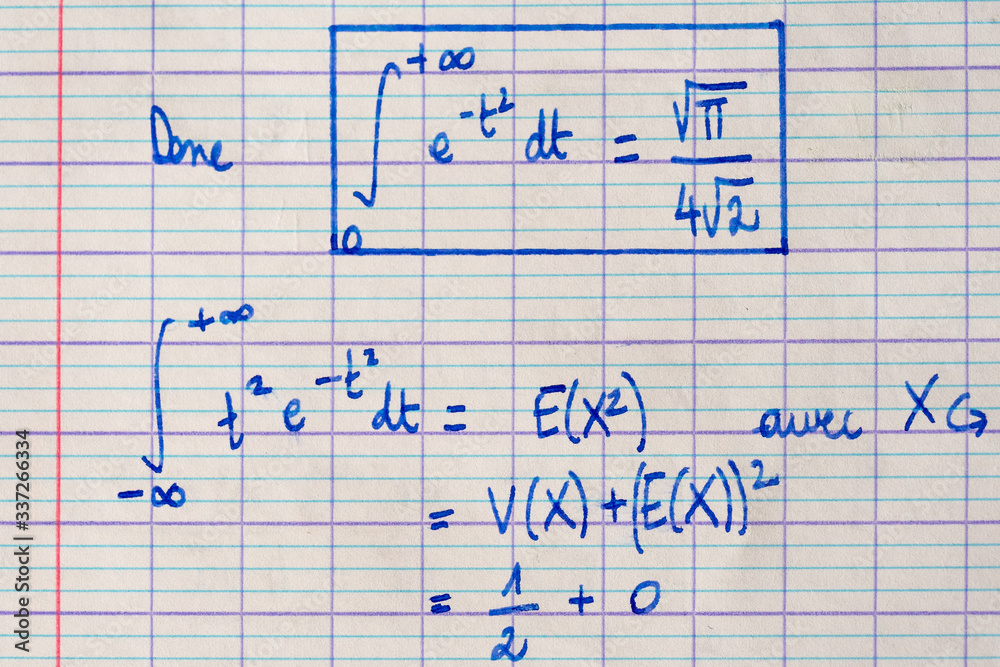 Donc ∫₀^{+∞} e^{-t²} dt = √π / 4√2
∫_{-∞}^{+∞} t² e^{-t²} dt = E(X²) avec X ↪
= V(X) + (E(X))²
= 1/2 + 0
Adobe Stock | #337266334